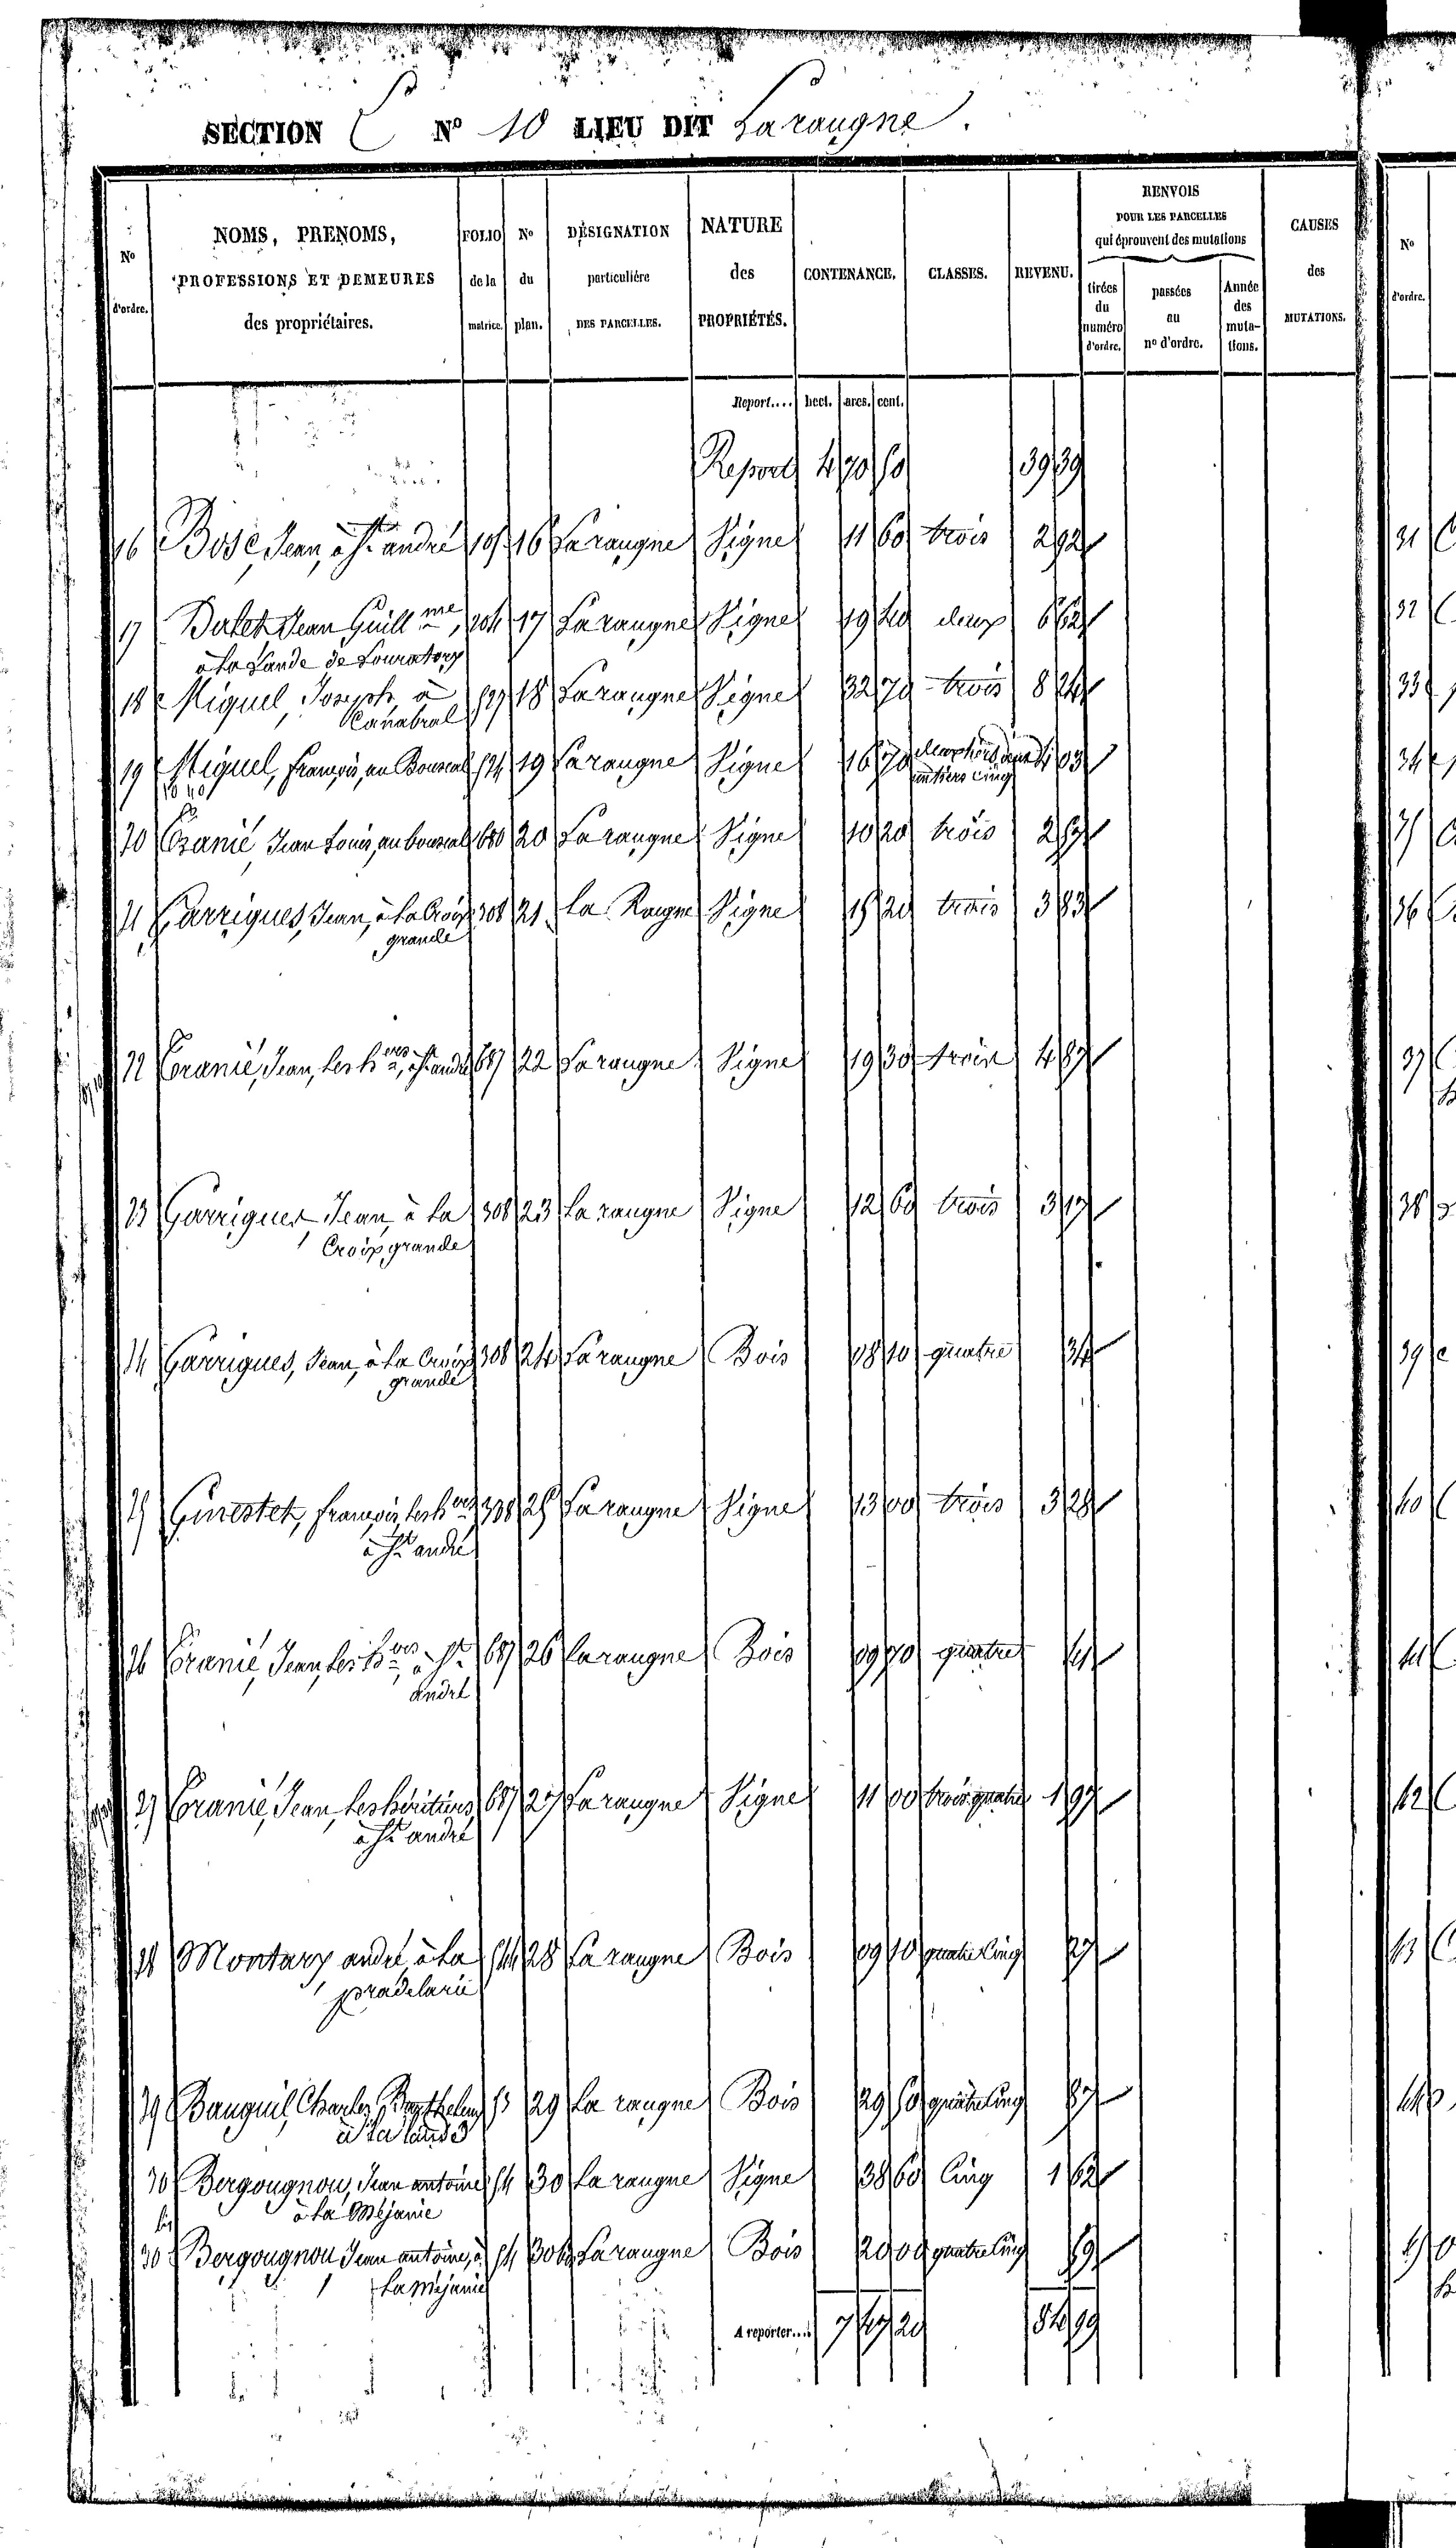 SECTION C N° 10 LIEU DIT La raugne.
N° d'ordre. NOMS, PRENOMS, PROFESSIONS ET DEMEURES des propriétaires. FOLIO de la matrice. N° du plan. DÉSIGNATION particulière DES PARCELLES. NATURE des PROPRIÉTÉS. CONTENANCE. CLASSES. REVENU. RENVOIS POUR LES PARCELLES qui éprouvent des mutations tirées du numéro d'ordre. passées au n° d'ordre. Année des mutations. CAUSES des MUTATIONS. N° d'ordre.
Report.... hect. ares. cent.
Report 4 70 50 39 39
16 Bosc, Jean, à St andré 105 16 La raugne Vigne 11 60 trois 2 92 31
17 Jean Guill me, 204 17 La raugne Vigne 19 40 deux 6 62 32
à la Lande de
18 Miquel, Joseph, à 527 18 La raugne Vigne 32 70 trois 8 24 33
Canabral
19 Miquel, françois, au Bouscal 524 19 La raugne Vigne 16 70 03 34
un tiers cinq
20 Jean Louis, au bouscal 680 20 La raugne Vigne 10 20 trois 2 57 35
21 Garrigues, Jean, à la Croix 308 21 la Raugne Vigne 15 20 trois 3 83 36
grande
22 Jean, les h ers, à St andré 687 22 La raugne Vigne 19 30 trois 4 87 37
23 Garrigues Jean, à la 308 23 la raugne Vigne 12 60 trois 3 17 38
Croix grande
24 Garrigues, Jean, à la Croix 308 24 La raugne Bois 08 10 quatre 34 39
grande
25 Ginestet, françois, les h ers 338 25 La raugne Vigne 13 00 trois 3 28 40
à St andré
26 Jean, les h ers, à St 687 26 la raugne Bois 09 70 quatre 41 41
andré
27 Jean, les héritiers, 687 27 La raugne Vigne 11 00 trois quatre 1 97 42
à St andré
28 Montary andré à la 544 28 La raugne Bois 09 10 quatre Cinq 27 43
pradelarie
29 Bauguil, Charles, Barthelemy 53 29 La raugne Bois 29 50 quatre Cinq 87 44
à la lande
30 Bergougnou, Jean antoine 54 30 La raugne Vigne 38 60 Cinq 1 62
à la Méjanie
bis
30 Bergougnou Jean antoine, à 54 30 bis La raugne Bois 20 00 quatre Cinq 59 45
la Méjanie
A reporter.... 7 47 20 84 99